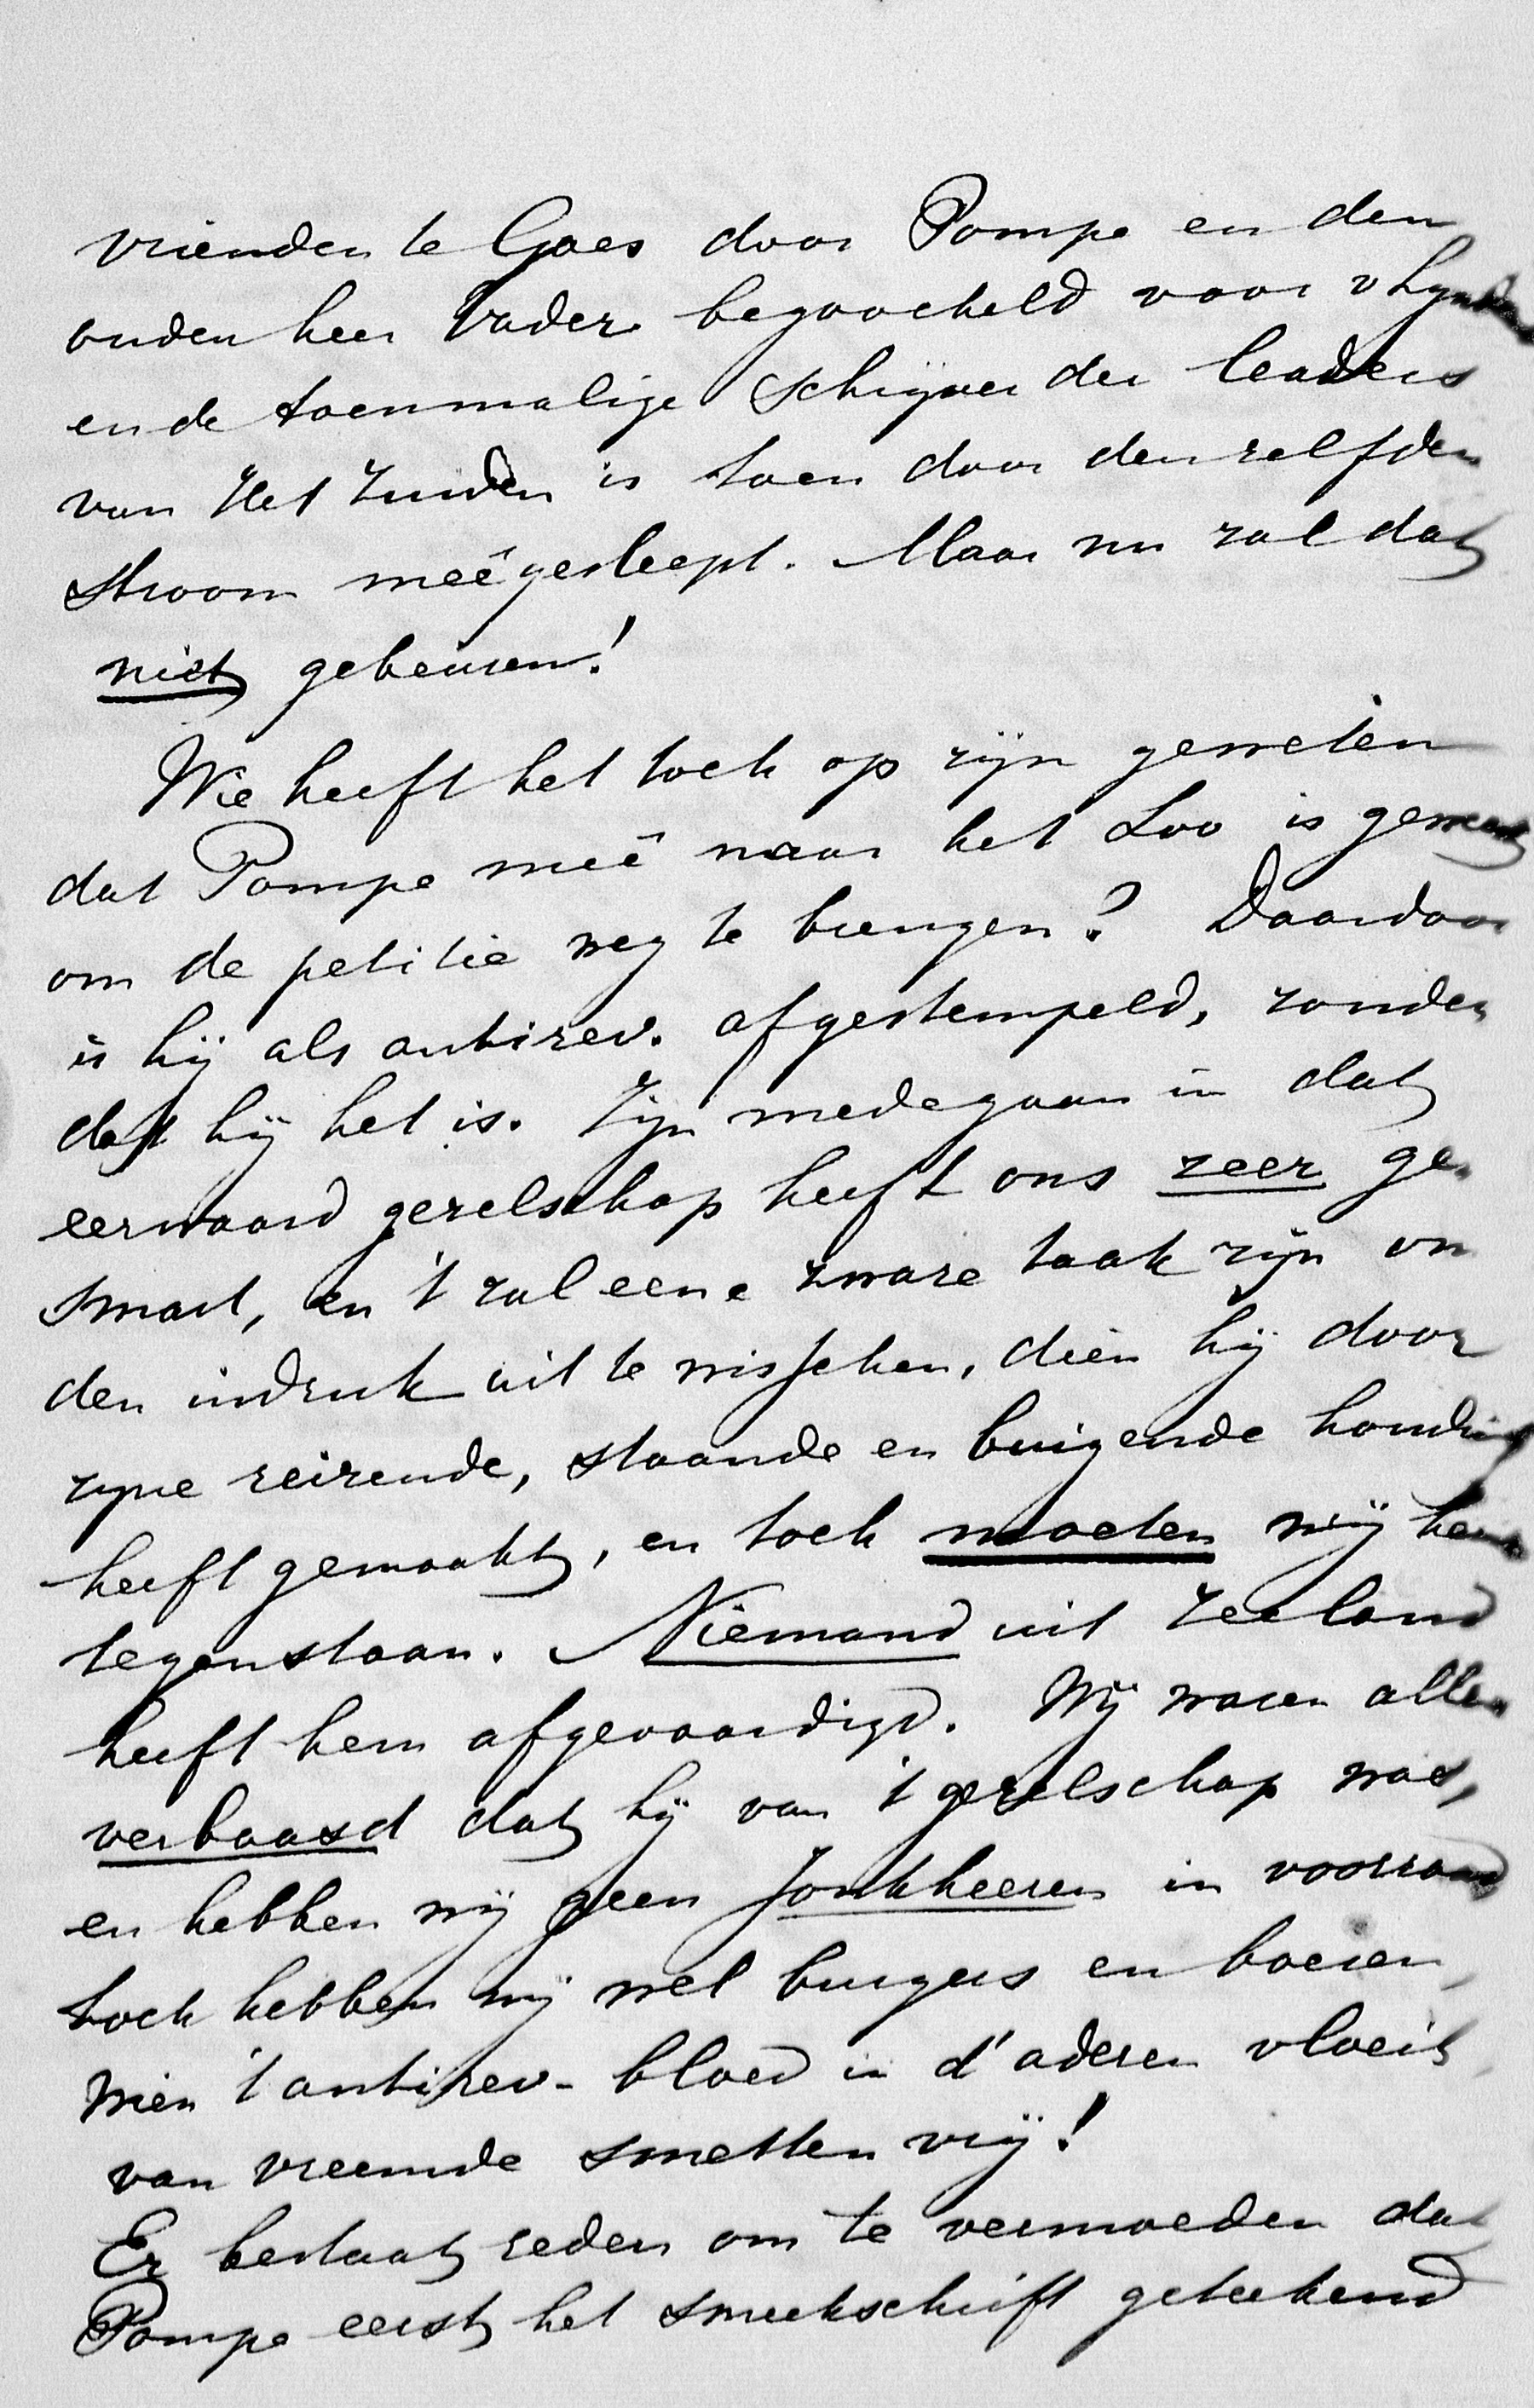 vrienden te Goes door Pompe en den
ouden heer Vader begoocheld voor v Lynden
en de toenmalige schrijver der leaders
van Het Zuiden is toen door denzelfden
stroom meêgesleept. Maar nu zal dat
niet gebeuren!
Wie heeft het toch op zijn geweten
dat Pompe meê naar het Loo is geweest
om de petitie weg te brengen? Daardoor
is hij als antirev. afgestempeld, zonder
dat hij het is. Zijn medegaan in dat
eerwaard gezelschap heeft ons zeer ge-
smart, en 't zal eene zware taak zijn om
den indruk uit te wisschen, dien hij door
zijne reizende, staande en buigende houding
heeft gemaakt, en toch moeten wij hem
tegenstaan. Niemand uit Zeeland
heeft hem afgevaardigd. Wij waren allen
verbaasd dat hij van 't gezelschap was,
en hebben wij geen Jonkheeren in voorraad
toch hebben wij wel burgers en boeren,
wien 't antirev- bloed in d' aderen vloeit
van vreemde smetten vrij!
Er bestaat reden om te vermoeden dat
Pompe eerst het smeekschrift geteekend